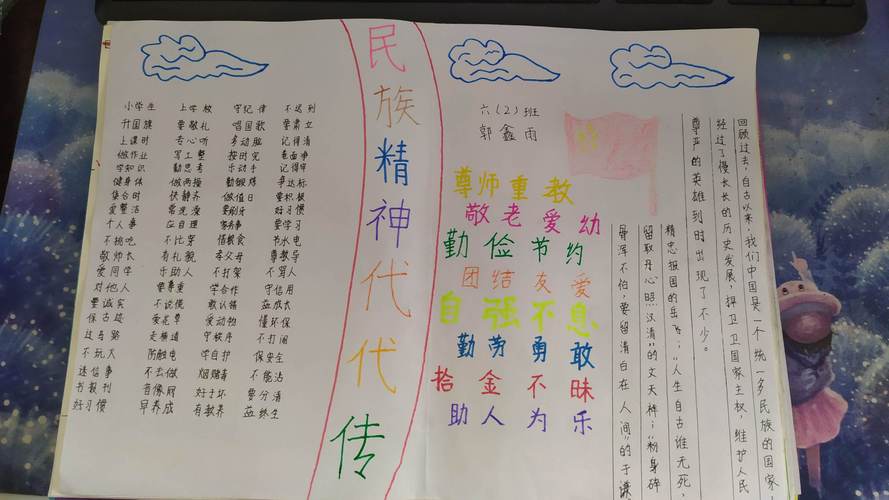 民族精神代代传
小学生 上学校 守纪律 不迟到
升国旗 要敬礼 唱国歌 要肃立
上课时 专心听 多动脑 记得清
做作业 写工整 按时完 卷面净
学知识 勤思考 乐动手 记得牢
健身体 做两操 勤锻炼 争达标
集合时 快静齐 做值日 要积极
爱整洁 常洗澡 要刷牙 好习惯
个人事 应自理 家务事 要学习
不挑吃 不比穿 惜粮食 节水电
敬师长 有礼貌 孝父母 尊教导
爱同学 乐助人 不打架 不骂人
对他人 要尊重 学合作 守信用
要诚实 不说谎 敢认错 益成长
保古迹 爱花草 爱动物 懂环保
过马路 走横道 守秩序 不打闹
不玩火 防触电 学自护 保安全
迷信事 不去做 烟赌毒 不能沾
书报刊 音像网 好于坏 要分清
好习惯 早养成 有教养 益终生
六(2)班
郭鑫雨
尊师重教
敬老爱幼
勤俭节约
团结友爱
自强不息
勤劳勇敢
拾金不昧
助人为乐
回顾过去,自古以来,我们中国是一个统一多民族的国家
经过了慢长长的历史发展,捍卫卫国家主权,维护人民
尊严的英雄到时出现了不少。
精忠报国的岳飞;“人生自古谁无死,
留取丹心照汉清”的文天祥;“粉身碎
骨浑不怕,要留清白在人间”的于谦